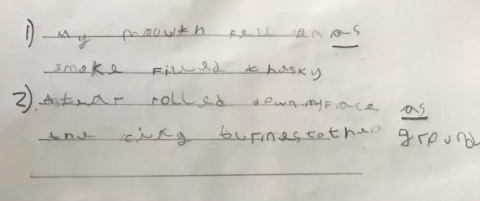 1) My moowth fell on as
smoke Filled thesky
2). A tear rolled down myFace as
the city burnes to the ground